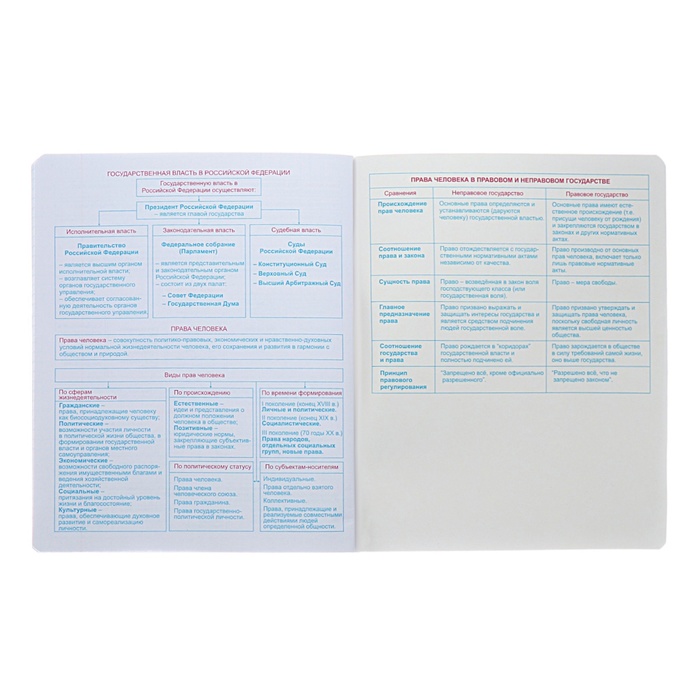 ГОСУДАРСТВЕННАЯ ВЛАСТЬ В РОССИЙСКОЙ ФЕДЕРАЦИИ
Государственную власть в
Российской Федерации осуществляют:
Президент Российской Федерации
– является главой государства
Исполнительная власть
Правительство
Российской Федерации
– является высшим органом
исполнительной власти;
– возглавляет систему
органов государственного
управления;
– обеспечивает согласован-
ную деятельность органов
государственного управления
Законодательная власть
Федеральное собрание
(Парламент)
– является представительным
и законодательным органом
Российской Федерации;
– состоит из двух палат:
– Совет Федерации
– Государственная Дума
Судебная власть
Суды
Российской Федерации
– Конституционный Суд
– Верховный Суд
– Высший Арбитражный Суд
ПРАВА ЧЕЛОВЕКА
Права человека – совокупность политико-правовых, экономических и нравственно-духовных
условий нормальной жизнедеятельности человека, его сохранения и развития в гармонии с
обществом и природой.
Виды прав человека
По сферам
жизнедеятельности
Гражданские –
права, принадлежащие человеку
как биосоциодуховному существу;
Политические –
возможности участия личности
в политической жизни общества, в
формировании государственной
власти и органов местного
самоуправления;
Экономические –
возможности свободного распоря-
жения имущественными благами и
ведения хозяйственной
деятельности;
Социальные –
притязания на достойный уровень
жизни и благосостояние;
Культурные –
права, обеспечивающие духовное
развитие и самореализацию
личности.
По происхождению
Естественные –
идеи и представления о
должном положении
человека в обществе;
Позитивные –
юридические нормы,
закрепляющие субъектив-
ные права в законах.
По времени формирования
I поколение (конец XVIII в.)
Личные и политические.
II поколение (конец XIX в.)
Социалистические.
III поколение (70 годы XX в.)
Права народов,
отдельных социальных
групп, новые права.
По политическому статусу
Права человека.
Права члена
человеческого союза.
Права гражданина.
Права государственно-
политической личности.
По субъектам-носителям
Индивидуальные.
Права отдельно взятого
человека.
Коллективные.
Права, принадлежащие и
реализуемые совместными
действиями людей
определенной общности.
ПРАВА ЧЕЛОВЕКА В ПРАВОВОМ И НЕПРАВОВОМ ГОСУДАРСТВЕ
Сравнения Неправовое государство Правовое государство
Происхождение
прав человека
Основные права определяются и
устанавливаются (даруется
человеку) государственной властью.
Основные права имеют есте-
ственное происхождение (т.е.
присущи человеку от рождения)
и закрепляются государством в
законах и других нормативных
актах.
Соотношение
права и закона
Право отождествляется с государ-
ственными нормативными актами
независимо от качества.
Право производно от основных
прав человека, включает только
лишь правовые нормативные
акты.
Сущность права
Право – возведённая в закон воля
господствующего класса (или
государственная воля).
Право – мера свободы.
Главное
предназначение
права
Право призвано выражать и
защищать интересы государства и
является средством подчинения
людей государственной воле.
Право призвано утверждать и
защищать права человека,
поскольку свободная личность
является высшей ценностью
общества.
Соотношение
государства
и права
Право рождается в "коридорах"
государственной власти и
полностью подчинено ей.
Право зарождается в обществе
в силу требований самой жизни,
оно выше государства.
Принцип
правового
регулирования
"Запрещено всё, кроме официально
разрешенного"
"Разрешено всё, что не
запрещено законом".